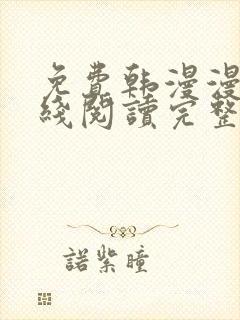 免费韩漫漫
线阅读完整
諾紫瞳